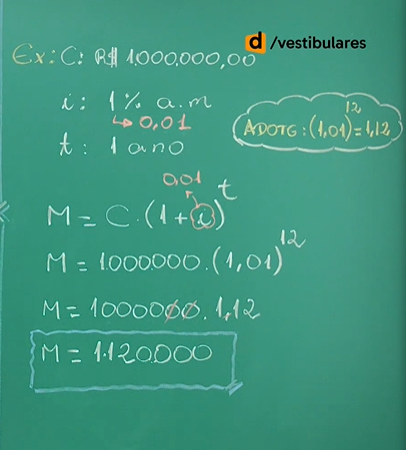 d /vestibulares
Ex: C: R$ 1.000.000,00
i: 1% a.m
↳ 0,01
t: 1 ano
ADOTE: (1,01)¹² = 1,12
0,01
M = C.(1+i)^t
M = 1.000.000.(1,01)¹²
M = 1000000.1,12
M = 1.120.000